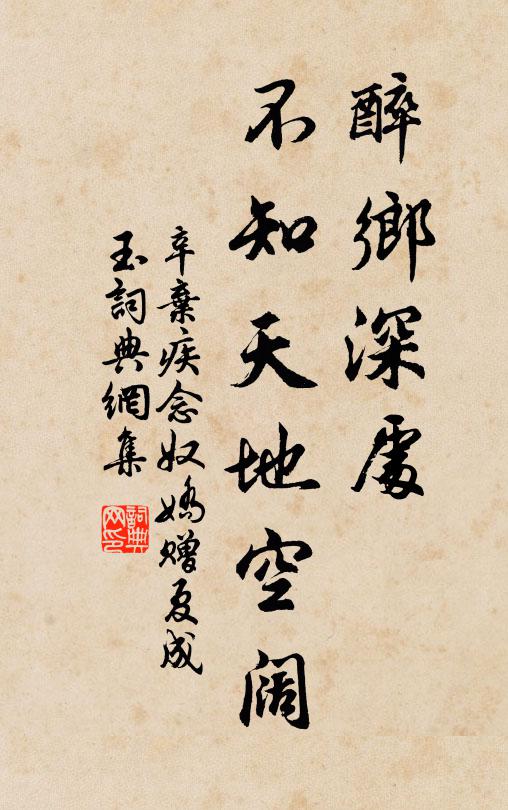 醉鄉深處
不知天地空闊
辛棄疾念奴嬌贈夏成
玉詞典網集
詞典
网印